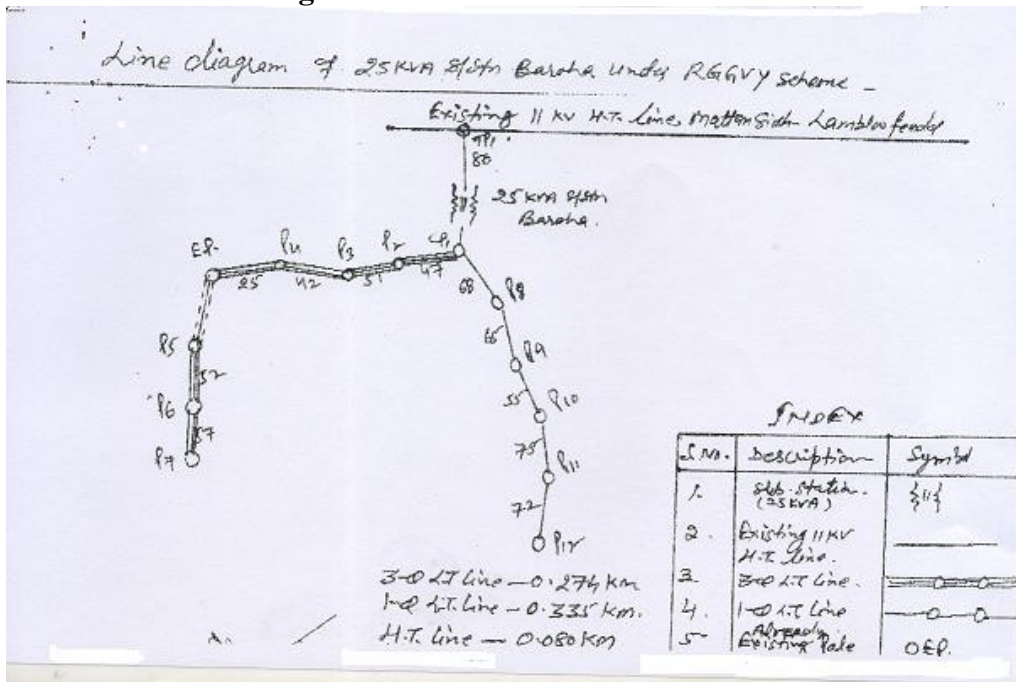 Line diagram of 25KVA S/Stn Baroha under RGGVY scheme -
Existing 11 KV H.T. line, Mattansidh Lambloo feeder
TP1
80
25 KVA S/Stn
Baroha.
EP P4 P3 P2 CP1
25 42 51 47
68 P8
66 P9
P5
52
55 P10
P6
57
75 P11
P7
72
P12
3-Ø LT line - 0.274 Km
1-Ø LT. line - 0.335 Km.
H.T. line - 0.080 Km
INDEX
S.No. Description Symbol
1. Sub. Station. (25KVA)
2. Existing 11 KV H.T. line.
3. 3-Ø LT line.
4. 1-Ø LT line
5 Already Existing Pole OEP.